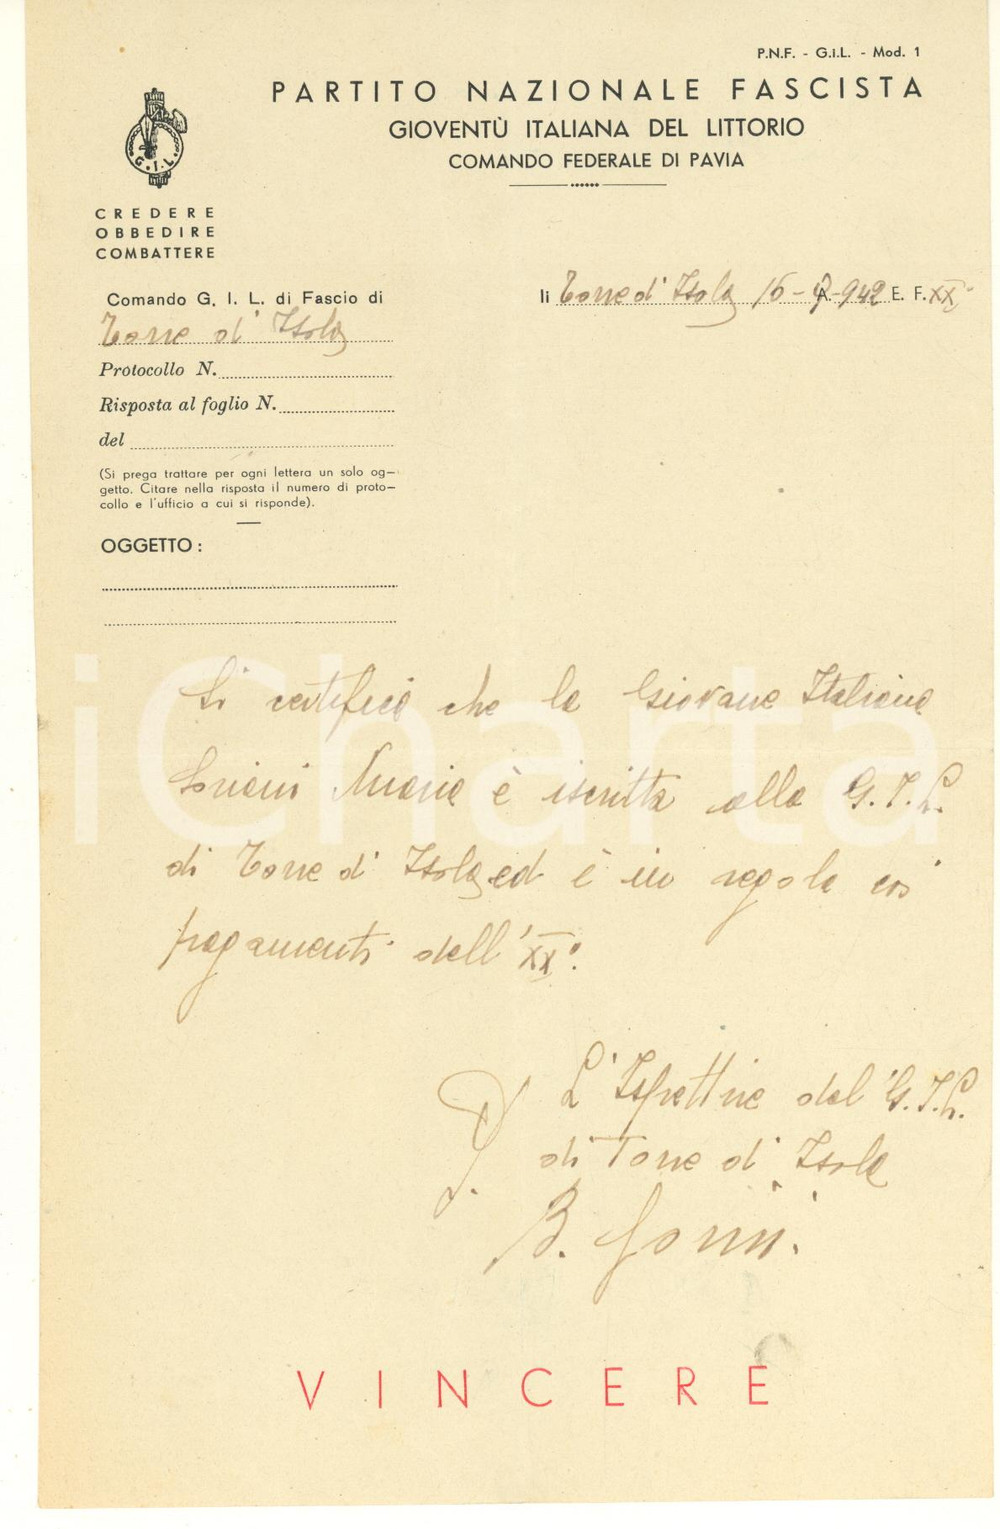 P.N.F. - G.i.L. - Mod. 1
PARTITO NAZIONALE FASCISTA
GIOVENTÙ ITALIANA DEL LITTORIO
COMANDO FEDERALE DI PAVIA
G.I.L.
CREDERE
OBBEDIRE
COMBATTERE
Comando G. I. L. di Fascio di
Torre d'Isola
li Torre d'Isola 16 - A. - 942 E. F. XX°
Protocollo N.
Risposta al foglio N.
del
(Si prega trattare per ogni lettera un solo og-
getto. Citare nella risposta il numero di proto-
collo e l'ufficio a cui si risponde).
OGGETTO :
Si certifica che la Giovane Italiana
Maria è iscritta alla G.I.L.
di Torre d'Isola ed è in regola coi
pagamenti dell'XX°.
L'Ispettrice del'G.I.L.
di Torre d'Isola
B.
VINCERE
iCharta